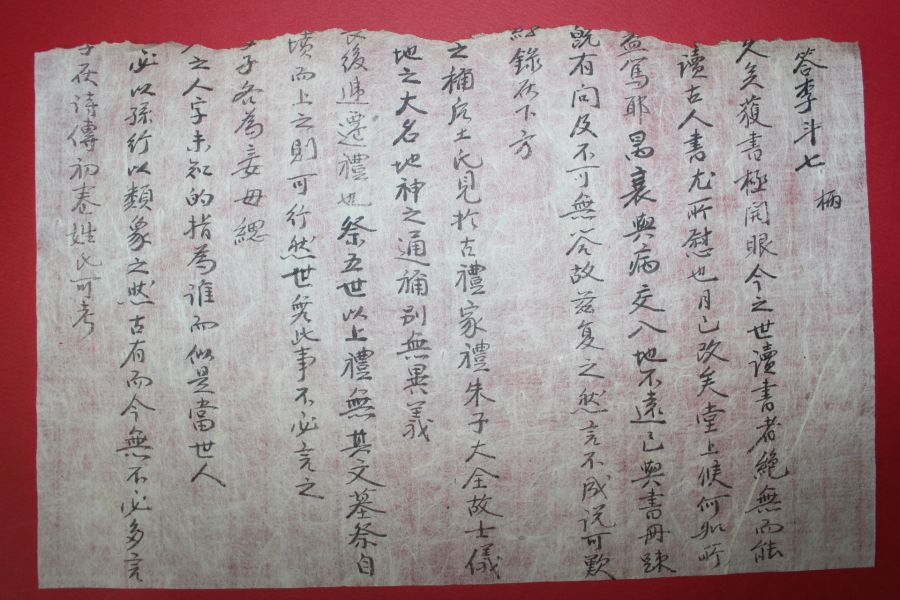 答李斗七 柄
久矣獲書極開眼今之世讀書者絶無而能
讀古人書尤所慰也月已改矣堂上候何如所
益篤耶禺衰與病交入地不遠已與書冊踈
旣有問及不可無答故玆复之然言不成说可歎
錄在下方
之稱后土氏見於古禮家禮朱子大全故士儀
地之大名地神之通稱別無異義
後遞遷禮也祭五世以上禮無其文墓祭自
墳而上之則可行然世無此事不必言之
子各為妾母緦
之人字未知的指為誰而似是當世人
必以孫行以類象之然古有而今無不必多言
子灰詩傳初卷姓氏可考